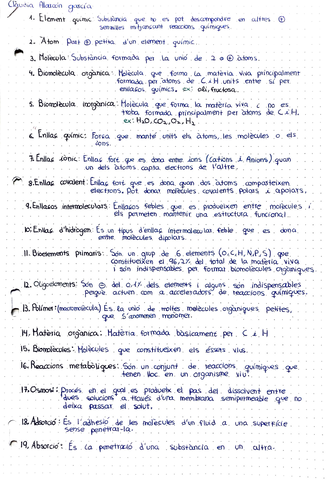 Clàudia Albarracín García
1. Element químic: Substància que no es pot descompondre en altres ⊕
senzilles mitjançant reaccions químiques.
2. Àtom: Part ⊕ petita d'un element químic.
3. Molècula: Substància formada per la unió de 2 o ⊕ àtoms.
4. Biomolècula orgànica: Molècula que forma la matèria viva principalment
formada per àtoms de C i H units entre sí per
enllaços químics. ex: oli, fructosa.
5. Biomolècula inorgànica: Molècula que forma la matèria viva i no es
troba formada principalment per àtoms de C i H.
ex: H₂O, CO₂, O₂, H₂
6. Enllaç químic: Força que manté units els àtoms, les molècules o els
ions.
7. Enllaç iònic: Enllaç fort que es dona entre ions (Cations i Anions) quan
un dels àtoms capta electrons de l'altre.
8. Enllaç covalent: Enllaç fort que es dona quan dos àtoms comparteixen
electrons. Pot donar molècules covalents polars i apolars.
9. Enllaços intermoleculars: Enllaços febles que es produeixen entre molècules i
els permeten mantenir una estructura funcional.
10. Enllaç d'hidrogen: És un tipus d'enllaç intermolecular feble que es dona
entre molècules dipolars.
11. Bioelements primaris: Són un grup de 6 elements (O, C, H, N, P, S) que
constitueixen el 96,2% del total de la matèria viva
i són indispensables per formar biomolècules orgàniques.
12. Oligoelements: Són ⊖ del 0.1% dels elements i alguns són indispensables
perquè activen com a acceleradors de reaccions químiques.
13. Polímer (macromolècula): És la unió de moltes molècules orgàniques petites,
que s'anomenen monòmer.
14. Matèria orgànica: Matèria formada bàsicament per C i H
15. Biomolècules: Molècules que constitueixen els éssers vius.
16. Reaccions metabòliques: Són un conjunt de reaccions químiques que
tenen lloc en un organisme viu.
17. Osmosi: Procés en el qual es produeix el pas del dissolvent entre
dues solucions a través d'una membrana semipermeable que no
deixa passar el solut.
18. Adsorció: És l'adhesió de les molècules d'un fluid a una superfície
sense penetrar-la.
19. Absorció: És la penetració d'una substància en un altra.